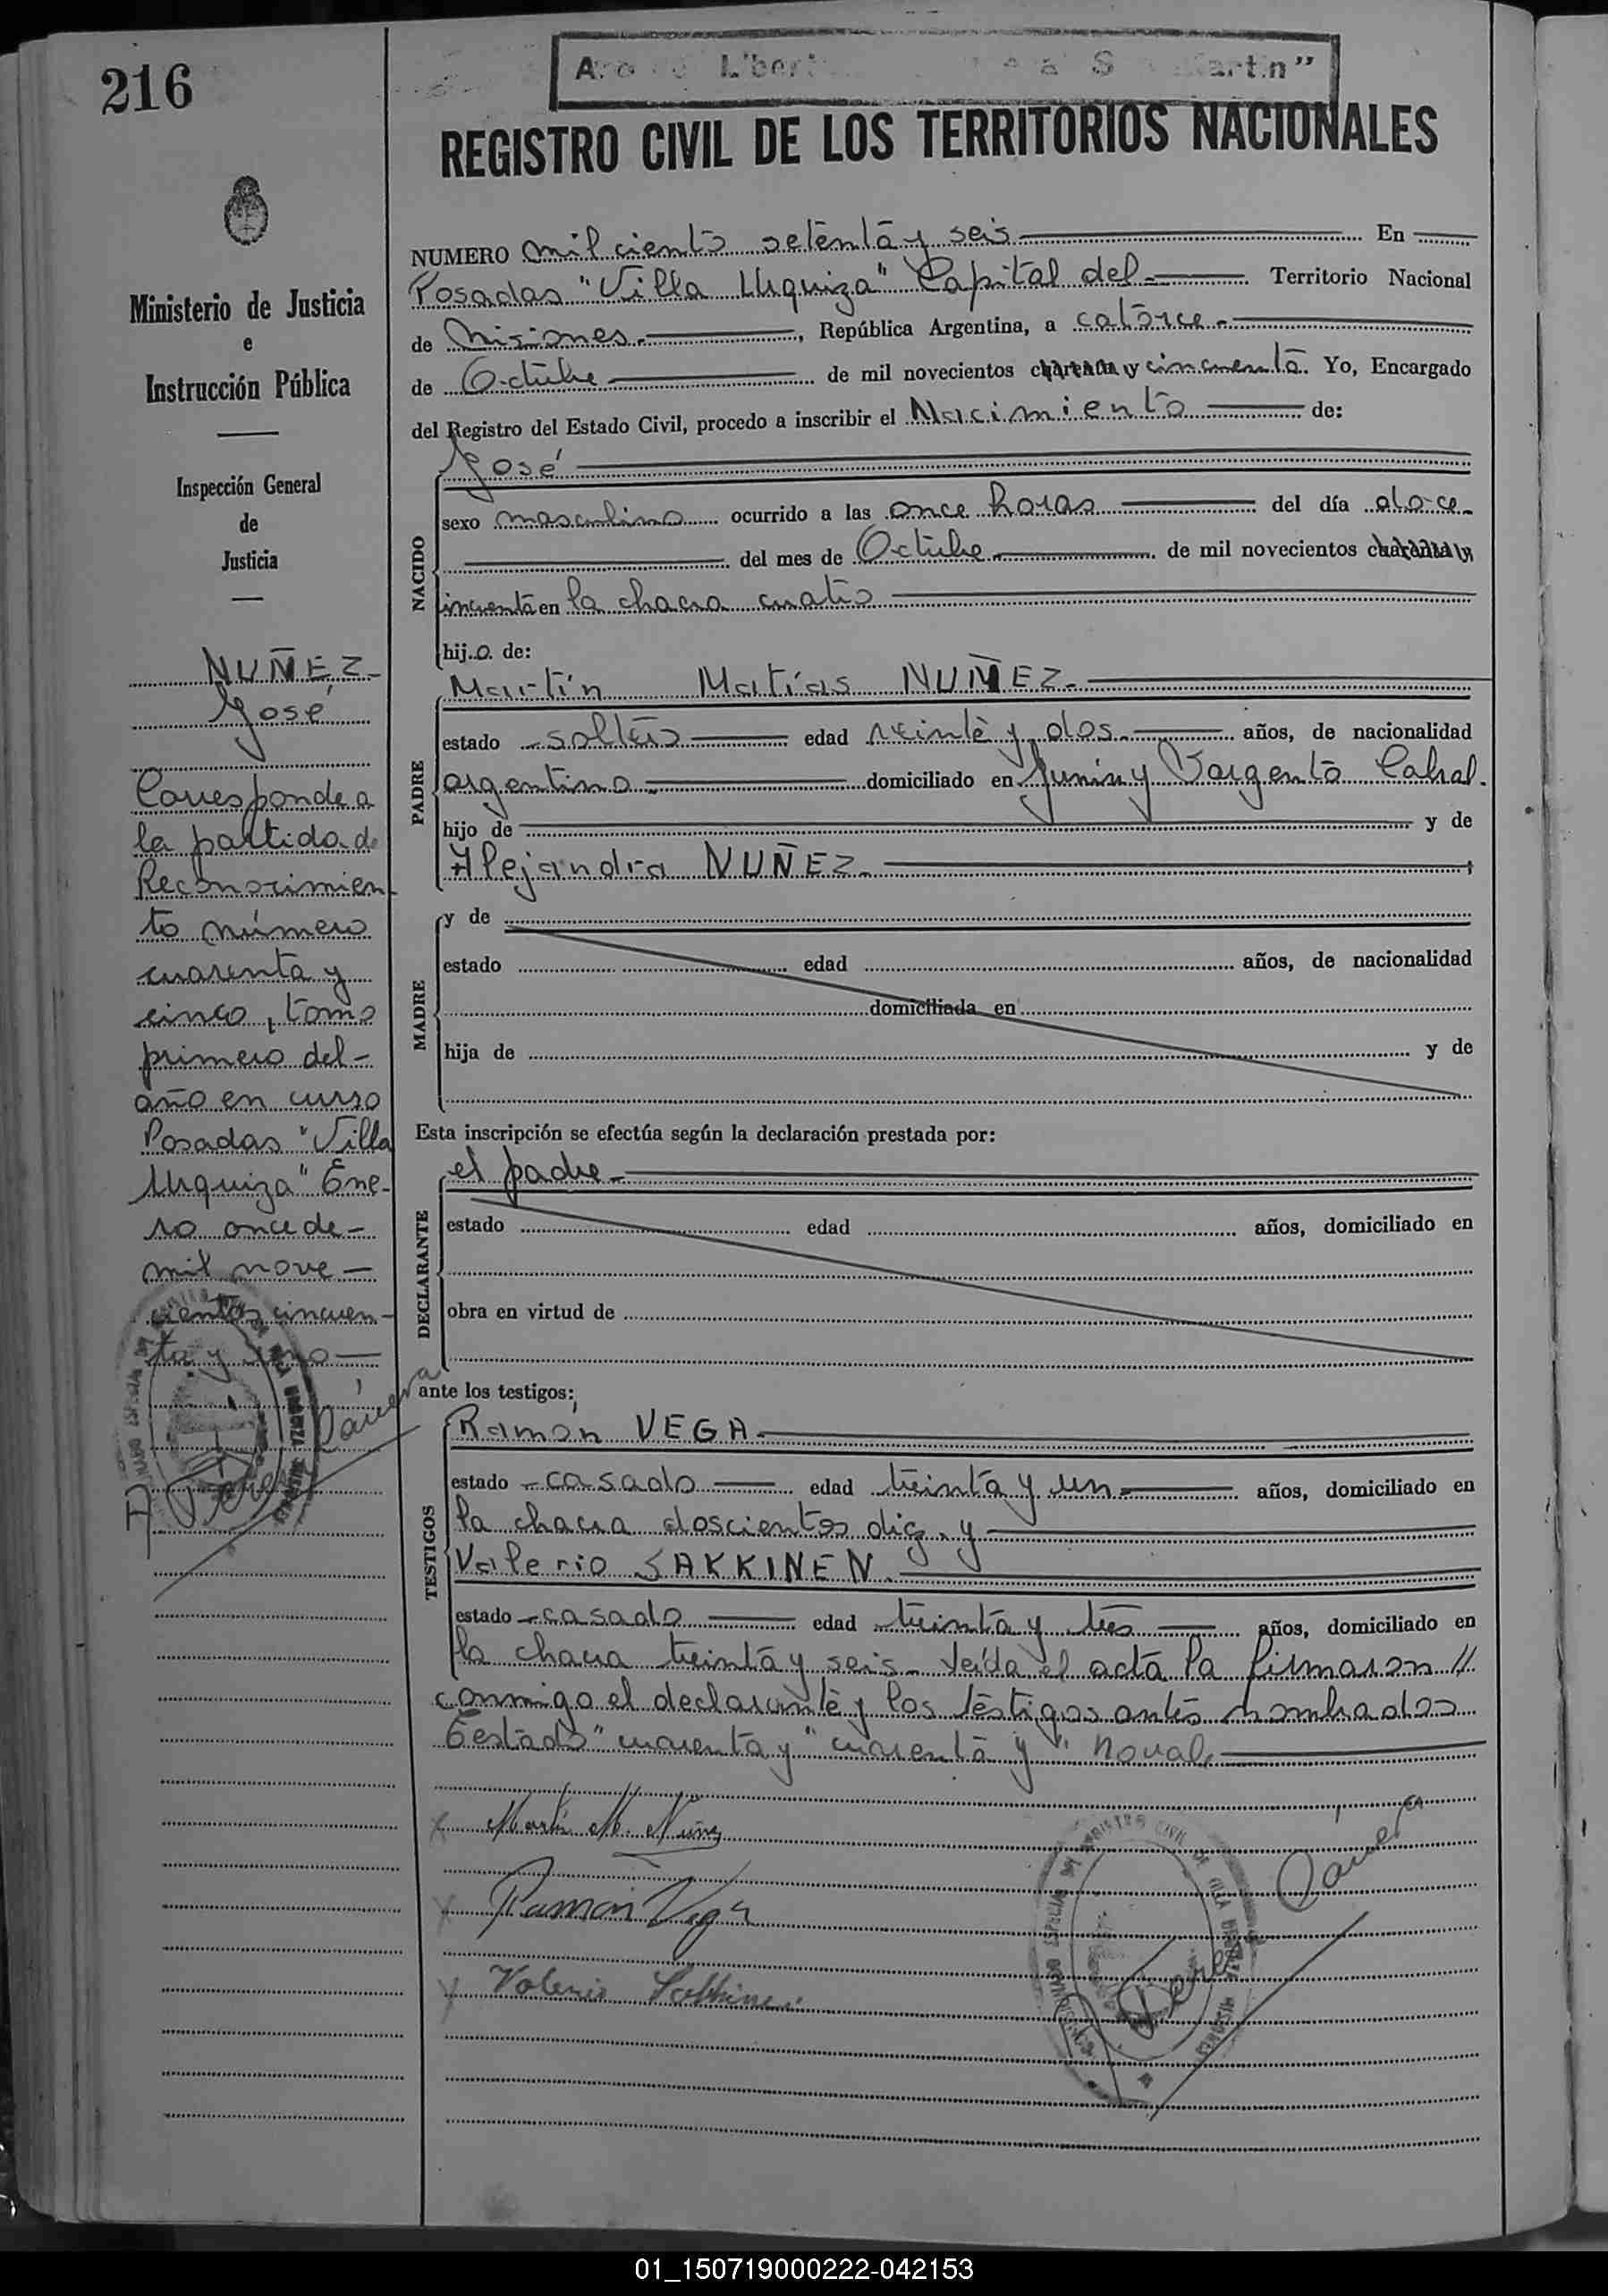 216
REGISTRO CIVIL DE LOS TERRITORIOS NACIONALES
Ministerio de Justicia
e
Instrucción Pública
Inspección General
de
Justicia
NUÑEZ-
José
Corresponde a
la partida de
Reconocimien-
to número
cuarenta y
cinco, tomo
primero del-
año en curso
Posadas "Villa
Urquiza" Ene-
ro once de-
mil nove-
cientos cincuen-
ta y uno-
NUMERO mil ciento setenta y seis En
Posadas "Villa Urquiza" Capital del- Territorio Nacional
de Misiones.-, República Argentina, a catorce.-
de Octubre de mil novecientos cuarenta y cincuenta. Yo, Encargado
del Registro del Estado Civil, procedo a inscribir el Nacimiento de:
NACIDO
José
sexo masculino ocurrido a las once horas del día doce-
del mes de Octubre- de mil novecientos cuarenta y
cincuenta en la chacra cuatro
hijo de:
PADRE
Martín Matías NUÑEZ.-
estado -soltero edad veinte y dos.- años, de nacionalidad
argentino.- domiciliado en Junin y Sargento Cabral.
hijo de y de
Alejandra NUÑEZ.-
MADRE
y de
estado edad años, de nacionalidad
domiciliada en
hija de y de
Esta inscripción se efectúa según la declaración prestada por:
DECLARANTE
el padre-
estado edad años, domiciliado en
obra en virtud de
ante los testigos:
TESTIGOS
Ramón VEGA.-
estado -casado- edad treinta y un.- años, domiciliado en
la chacra doscientos diez. y
Valerio SAKKINEN.
estado -casado edad treinta y tres años, domiciliado en
la chacra treinta y seis- leída el acta la firmaron //
conmigo el declarante y los testigos antes nombrados
Testado "cuarenta y" "cuarenta y" no vale
Martín M. Nuñez
Ramón Vega
Valerio Sakkinen
01_150719000222-042153